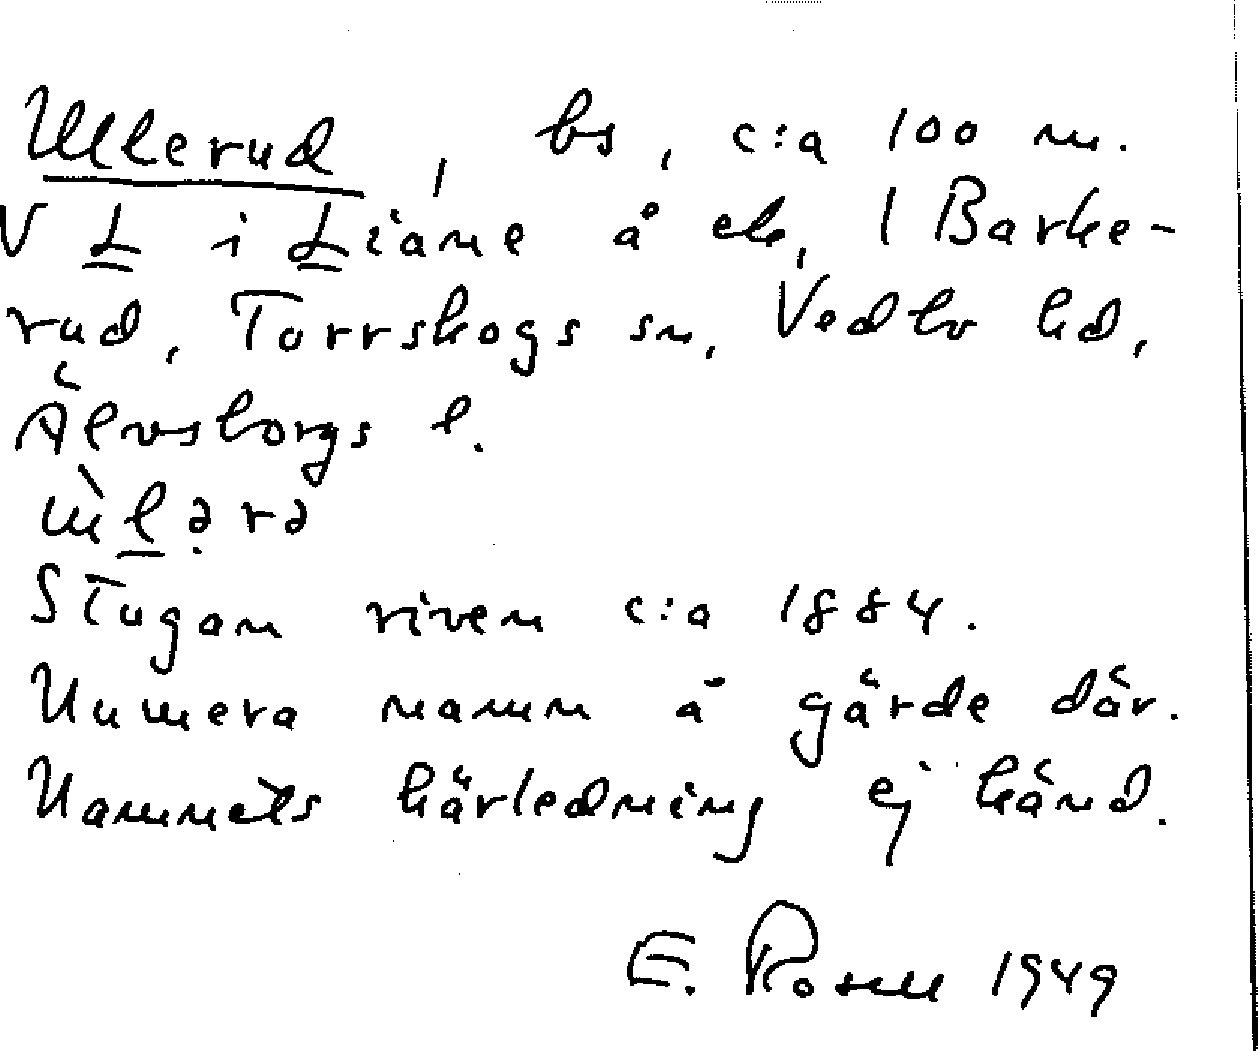 Ullerud, bs, c:a 100 m.
V L i Liane å ek, 1 Barke-
rud, Torrskogs sn, Vedbo hd,
Älvsborgs l.
ùlərə
Stugan riven c:a 1884.
Numera namn å gärde där.
Namnets härledning ej känd.
E. Rosell 1949